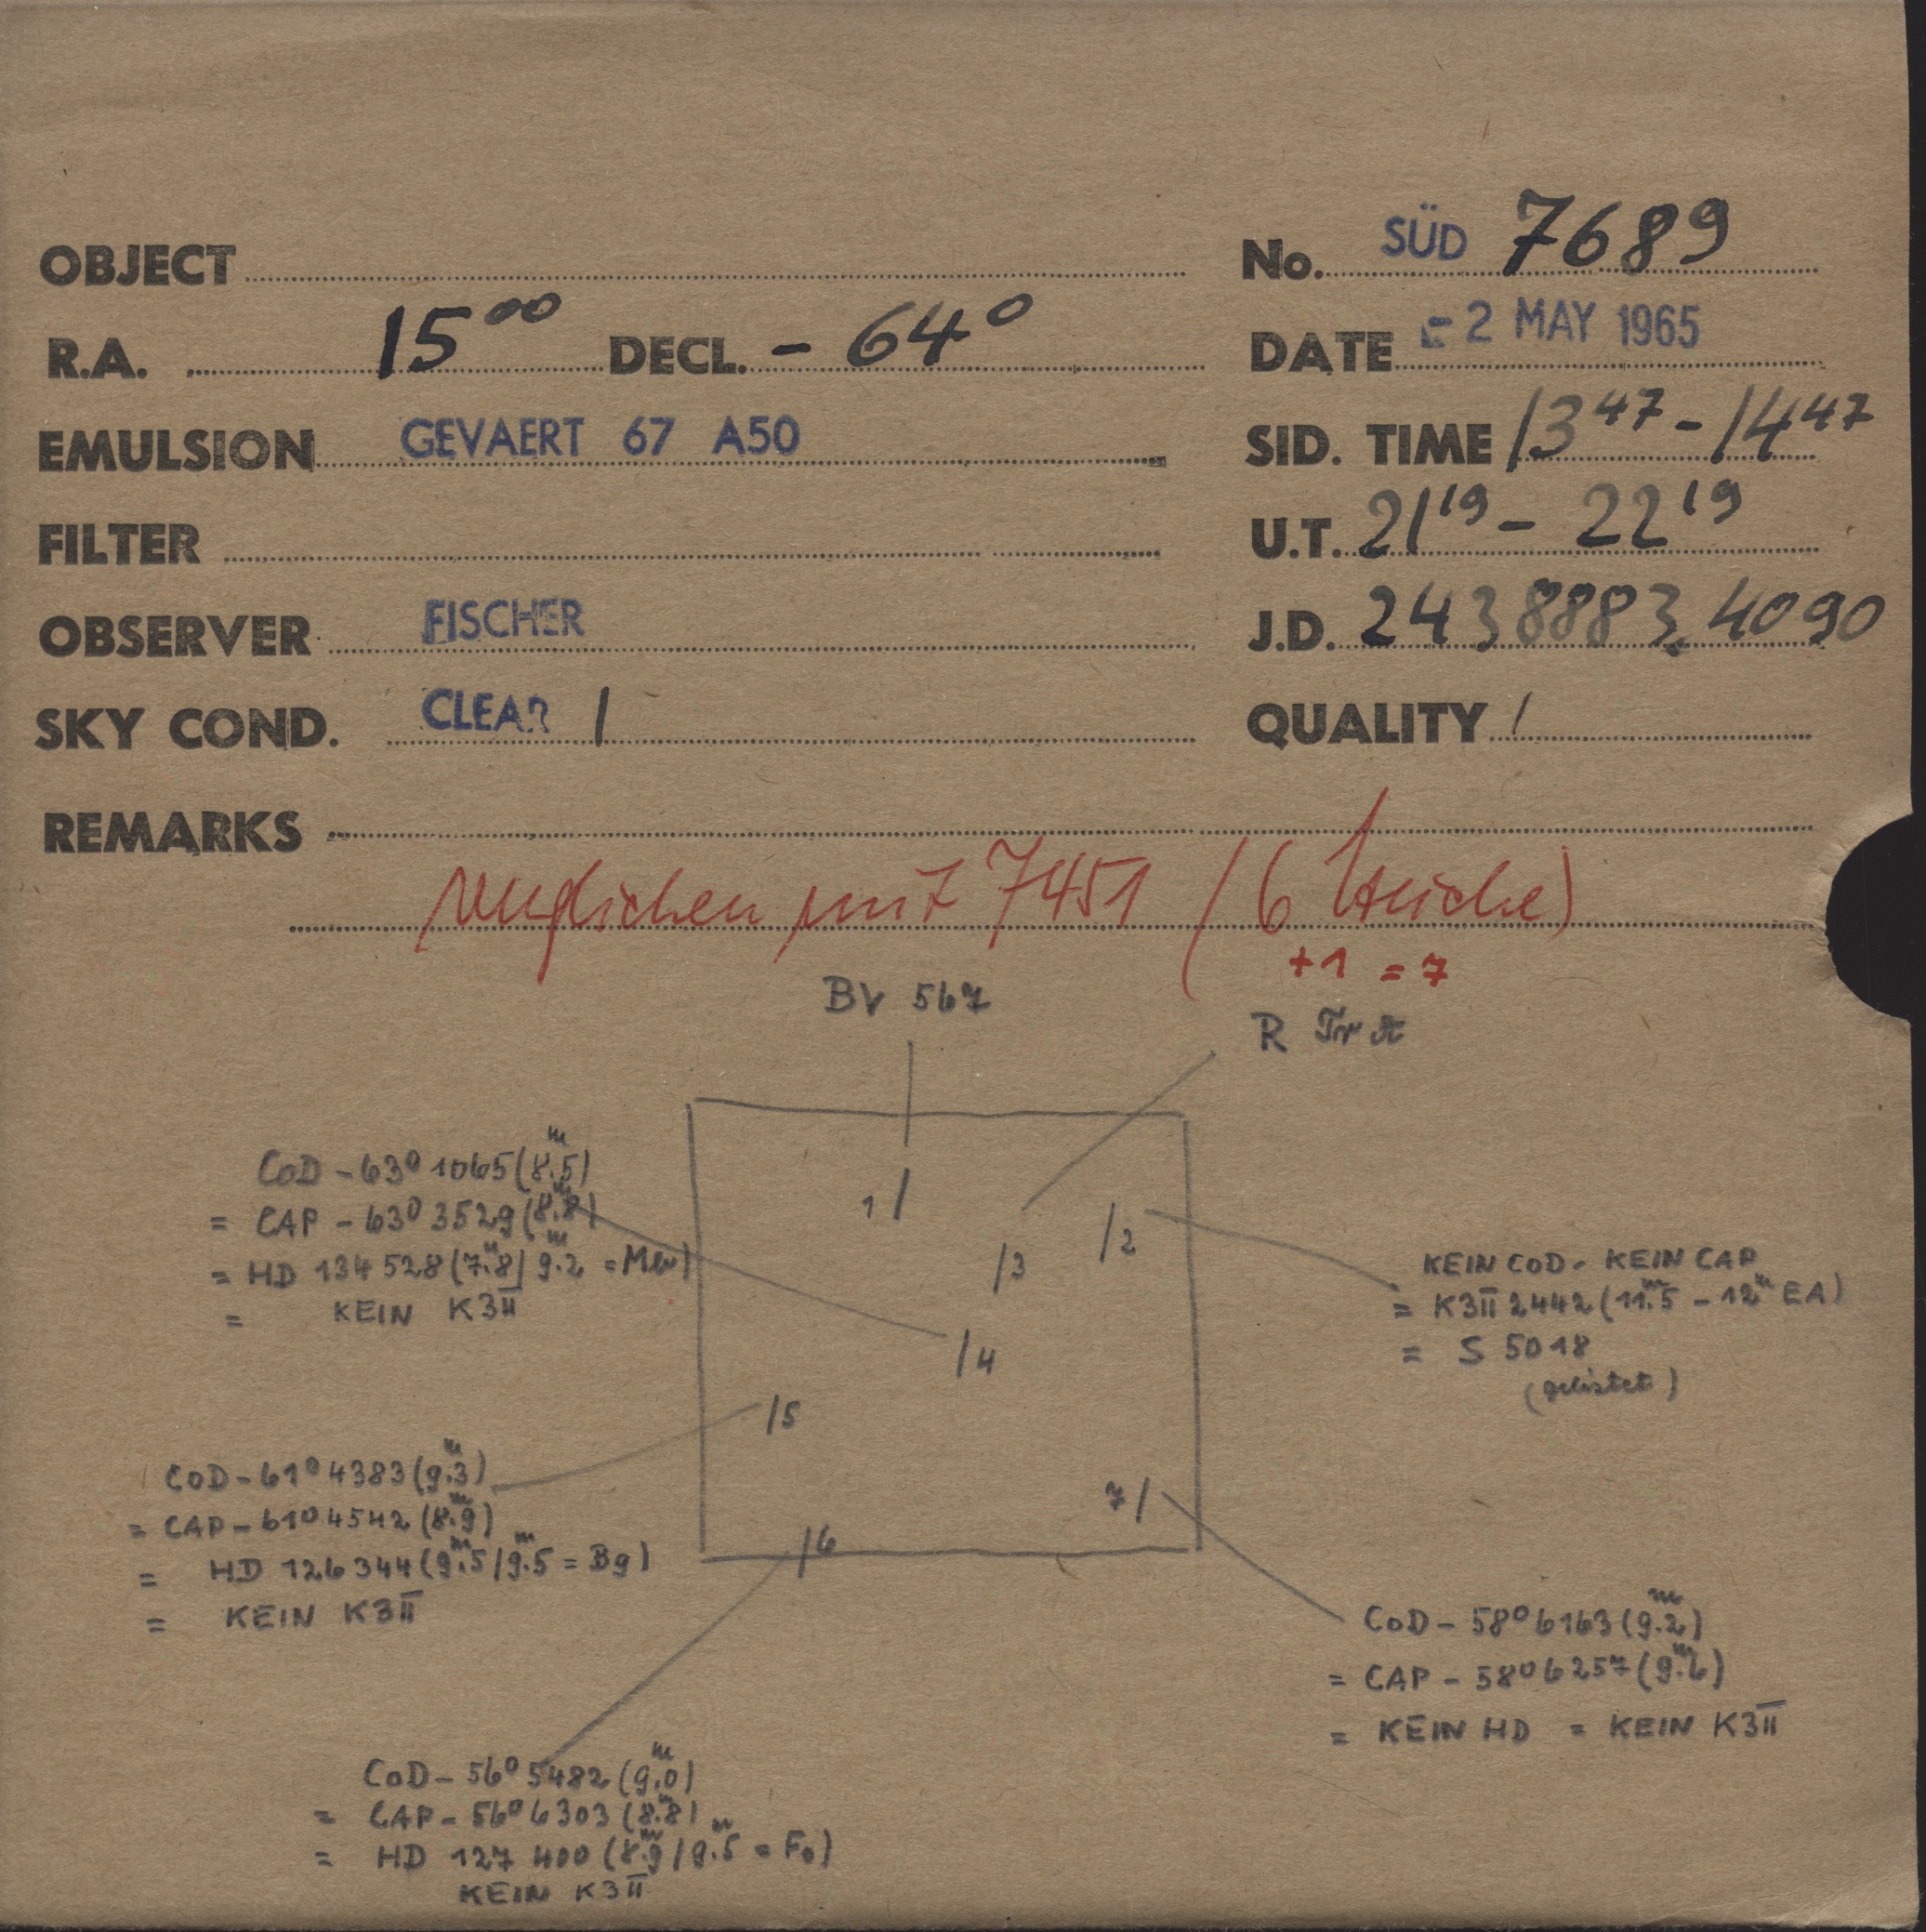 OBJECT
No. SÜD 7689
R.A. 15⁰⁰ DECL. - 64°
DATE - 2 MAY 1965
EMULSION GEVAERT 67 A50
SID. TIME 13⁴⁷ - 14⁴⁷
FILTER
U.T. 21¹⁹ - 22¹⁹
OBSERVER FISCHER
J.D. 2438883.4090
SKY COND. CLEAR 1
QUALITY 1
REMARKS
verglichen mit 7451 (6 Striche)
+1 = 7
BV 567
R TrA
1
2
3
4
5
6
7
CoD - 63° 1065 (8.ᵐ5)
= CAP - 63° 3529 (8.ᵐ8)
= HD 134528 (7.ᵐ8/9.ᵐ2 = Mb)
= KEIN K3II
KEIN CoD - KEIN CAP
= K3II 2442 (11.ᵐ5 - 12ᵐ EA)
= S 5018
(gelistet)
CoD - 61° 4383 (9.ᵐ3)
= CAP - 61° 4542 (8.ᵐ9)
= HD 126344 (9.ᵐ5/9.ᵐ5 = B9)
= KEIN K3II
CoD - 58° 6163 (9.ᵐ2)
= CAP - 58° 6257 (9.ᵐ6)
= KEIN HD = KEIN K3II
CoD - 56° 5482 (9.ᵐ0)
= CAP - 56° 6303 (8.ᵐ8)
= HD 127400 (8.ᵐ9/9.ᵐ5 = F0)
KEIN K3II